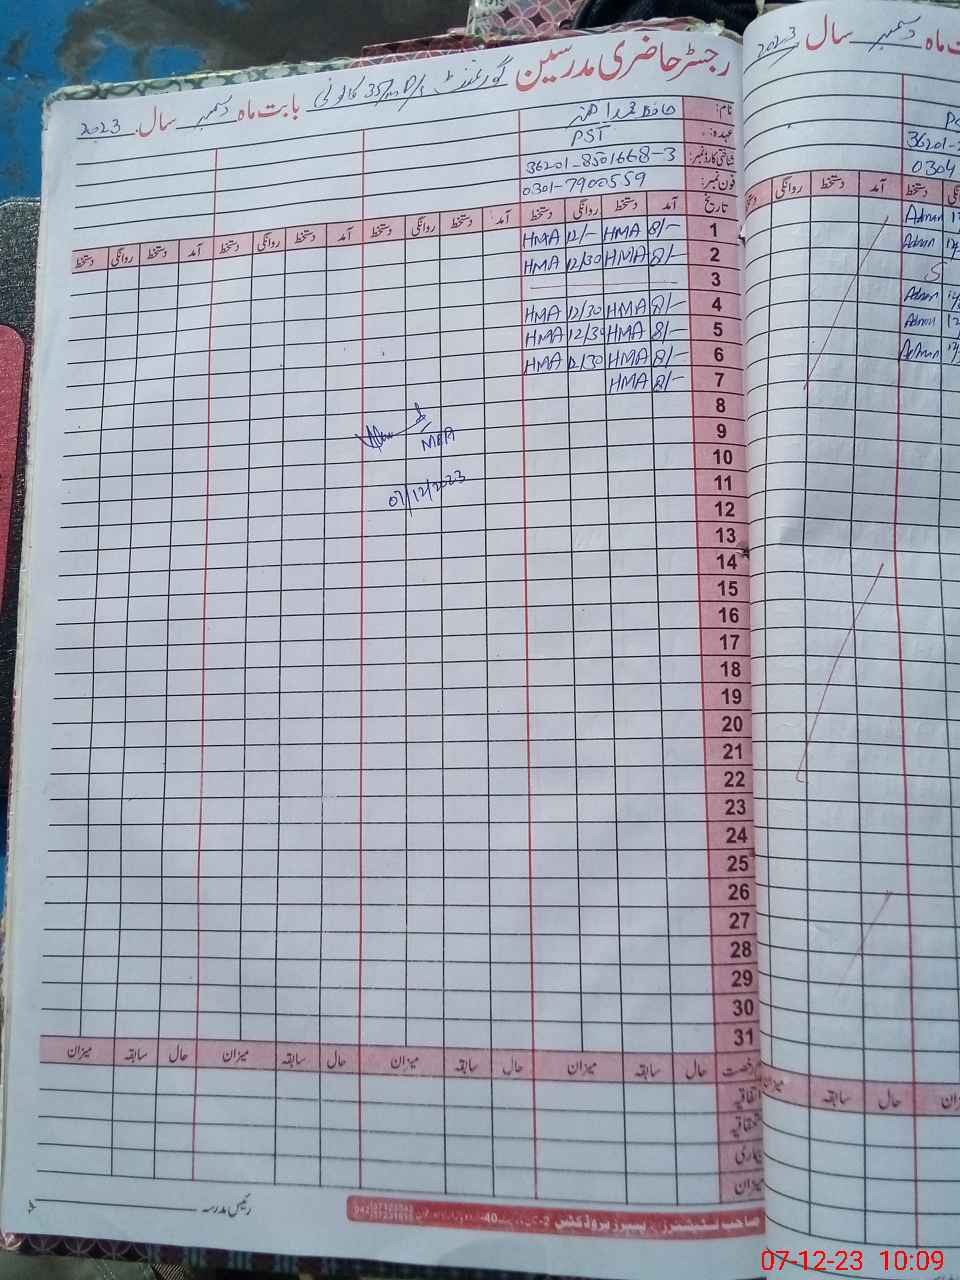 رجسٹر حاضری مدرسین گورنمنٹ 35/m P/s کالونی بابت ماہ دسمبر سال 2023
نام: حافظ محمد
عہدہ: PST
شناختی کارڈ نمبر: 36201-8501668-3
فون نمبر: 0301-7900559
تاریخ آمد دستخط روانگی دستخط آمد دستخط روانگی دستخط آمد دستخط روانگی دستخط آمد دستخط روانگی دستخط
1 8/- HMA 12/- HMA
2 8/- HMA 12/30 HMA
3
4 8/- HMA 12/30 HMA
5 8/- HMA 12/30 HMA
6 8/- HMA 12/30 HMA
7 8/- HMA
8
9
MEA
10
11
07/12/2023
12
13
14
15
16
17
18
19
20
21
22
23
24
25
26
27
28
29
30
31
رخصت حال سابقہ میزان حال سابقہ میزان حال سابقہ میزان حال سابقہ میزان
اتفاقیہ
استحقاقیہ
بیماری
میزان
رئیس مدرسہ
صاحب سٹیشنرز پیپرز پروڈکٹس
ماہ دسمبر سال 2023
36201-
0304
دستخط آمد دستخط روانگی
Admn
Admn
S
Admn
Admn
Admn
حال سابقہ میزان
07-12-23 10:09